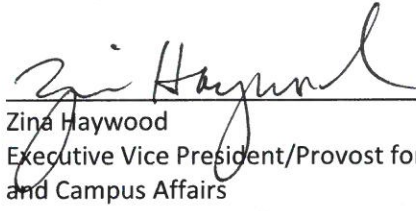 Zina Haywood
Zina Haywood
Executive Vice President/Provost for
and Campus Affairs